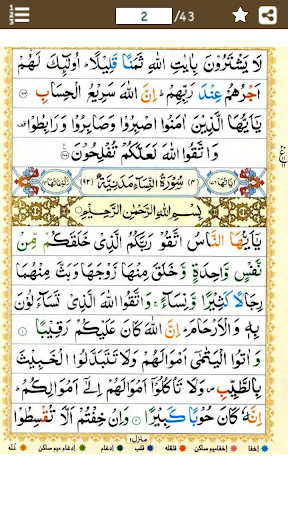 2 /43
لَا يَشْتَرُوْنَ بِاٰيٰتِ اللّٰهِ ثَمَنًا قَلِيْلًا ؕ اُولٰٓئِكَ لَهُمْ
اَجْرُهُمْ عِنْدَ رَبِّهِمْ ؕ اِنَّ اللّٰهَ سَرِيْعُ الْحِسَابِ
يٰٓاَيُّهَا الَّذِيْنَ اٰمَنُوا اصْبِرُوْا وَصَابِرُوْا وَرَابِطُوْا
وَاتَّقُوا اللّٰهَ لَعَلَّكُمْ تُفْلِحُوْنَ
اٰيَاتُهَا ١٧٦ (٤) سُوْرَةُ النِّسَآءِ مَدَنِيَّةٌ (٩٢) رُكُوْعَاتُهَا ٢٤
بِسْمِ اللّٰهِ الرَّحْمٰنِ الرَّحِيْمِ
يٰٓاَيُّهَا النَّاسُ اتَّقُوْا رَبَّكُمُ الَّذِيْ خَلَقَكُمْ مِّنْ
نَّفْسٍ وَّاحِدَةٍ وَّخَلَقَ مِنْهَا زَوْجَهَا وَبَثَّ مِنْهُمَا
رِجَالًا كَثِيْرًا وَّنِسَآءً ۚ وَاتَّقُوا اللّٰهَ الَّذِيْ تَسَآءَلُوْنَ
بِهٖ وَالْاَرْحَامَ ؕ اِنَّ اللّٰهَ كَانَ عَلَيْكُمْ رَقِيْبًا
وَاٰتُوا الْيَتٰمٰٓى اَمْوَالَهُمْ وَلَا تَتَبَدَّلُوا الْخَبِيْثَ
بِالطَّيِّبِ ۪ وَلَا تَاْكُلُوْٓا اَمْوَالَهُمْ اِلٰٓى اَمْوَالِكُمْ ؕ
اِنَّهٗ كَانَ حُوْبًا كَبِيْرًا وَاِنْ خِفْتُمْ اَلَّا تُقْسِطُوْا
منزل١
اخفا اخفامیم ساکن قلقله قلب ادغام ادغام میم ساکن غنّه